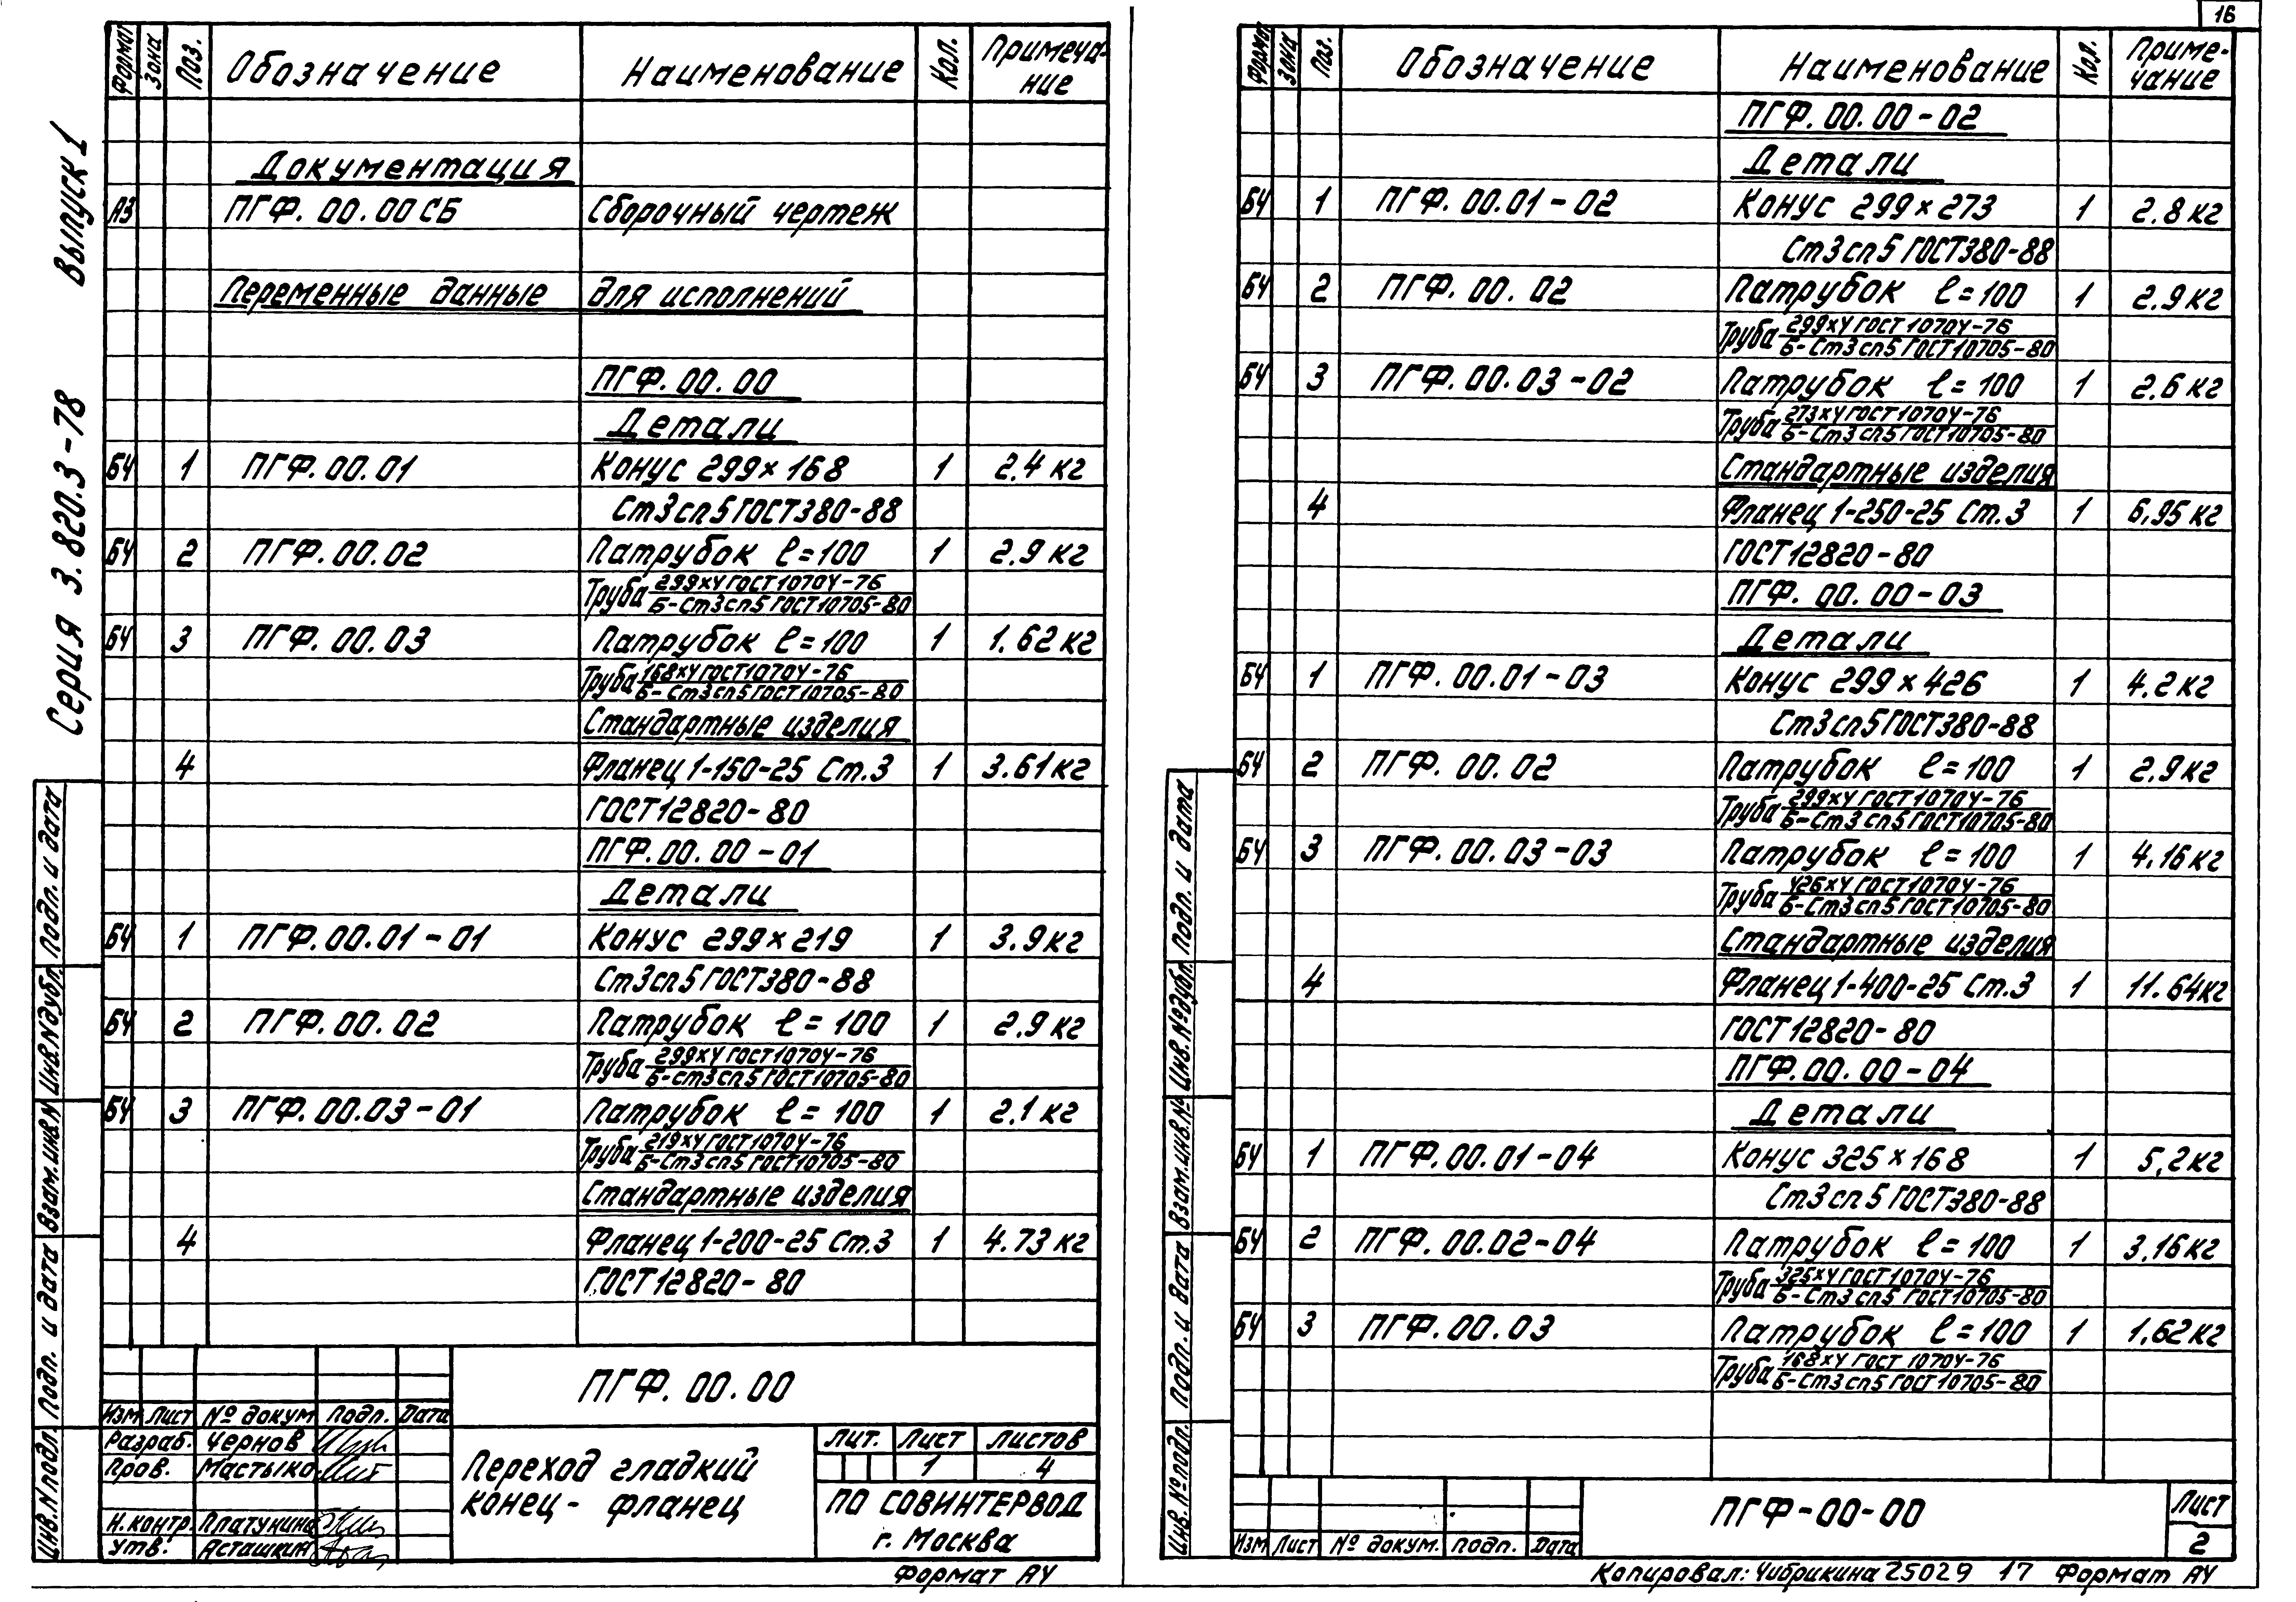 Серия 3.820.3-78 Выпуск 1
Формат Зона Поз. Обозначение Наименование Кол. Примеча-
ние
Документация
А3 ПГФ.00.00СБ Сборочный чертеж
Переменные данные для исполнений
ПГФ.00.00
Детали
БЧ 1 ПГФ.00.01 Конус 299×168 1 2.4 кг
Ст3сп5 ГОСТ380-88
БЧ 2 ПГФ.00.02 Патрубок ℓ=100 1 2.9 кг
Труба 299х4 ГОСТ 10704-76
Б-Ст3сп5 ГОСТ 10705-80
БЧ 3 ПГФ.00.03 Патрубок ℓ=100 1 1.62 кг
Труба 168х4 ГОСТ10704-76
Б-Ст3сп5 ГОСТ10705-80
Стандартные изделия
4 Фланец 1-150-25 Ст.3 1 3.61 кг
ГОСТ12820-80
ПГФ.00.00-01
Детали
БЧ 1 ПГФ.00.01-01 Конус 299×219 1 3.9 кг
Ст3сп5 ГОСТ380-88
БЧ 2 ПГФ.00.02 Патрубок ℓ=100 1 2.9 кг
Труба 299х4 ГОСТ10704-76
Б-Ст3сп5 ГОСТ10705-80
БЧ 3 ПГФ.00.03-01 Патрубок ℓ=100 1 2.1 кг
Труба 219х4 ГОСТ10704-76
Б-Ст3сп5 ГОСТ10705-80
Стандартные изделия
4 Фланец 1-200-25 Ст.3 1 4.73 кг
ГОСТ12820-80
ПГФ.00.00
Изм Лист № докум Подп. Дата
Разраб. Чернов
Пров. Мастыко
Н.контр. Платунина
Утв. Асташкин
Переход гладкий
конец- фланец
Лит. Лист Листов
1 4
ПО СОВИНТЕРВОД
г. Москва
Формат А4
Инв.N подл. Подп. и дата Взам.инв.N Инв.N дубл. Подп. и дата
16
Формат Зона Поз. Обозначение Наименование Кол. Приме-
чание
ПГФ.00.00-02
Детали
БЧ 1 ПГФ.00.01-02 Конус 299×273 1 2.8 кг
Ст3сп5 ГОСТ380-88
БЧ 2 ПГФ.00.02 Патрубок ℓ=100 1 2.9 кг
Труба 299х4 ГОСТ 10704-76
Б-Ст3сп5 ГОСТ10705-80
БЧ 3 ПГФ.00.03-02 Патрубок ℓ=100 1 2.6 кг
Труба 273х4 ГОСТ10704-76
Б-Ст3сп5 ГОСТ10705-80
Стандартные изделия
4 Фланец 1-250-25 Ст.3 1 6,95 кг
ГОСТ12820-80
ПГФ.00.00-03
Детали
БЧ 1 ПГФ.00.01-03 Конус 299×426 1 4.2 кг
Ст3сп5 ГОСТ380-88
БЧ 2 ПГФ.00.02 Патрубок ℓ=100 1 2.9 кг
Труба 299х4 ГОСТ10704-76
Б-Ст3сп5 ГОСТ10705-80
БЧ 3 ПГФ.00.03-03 Патрубок ℓ=100 1 4.16 кг
Труба 426х4 ГОСТ10704-76
Б-Ст3сп5 ГОСТ10705-80
Стандартные изделия
4 Фланец 1-400-25 Ст.3 1 11.64кг
ГОСТ12820-80
ПГФ.00.00-04
Детали
БЧ 1 ПГФ.00.01-04 Конус 325×168 1 5,2 кг
Ст3сп5 ГОСТ380-88
БЧ 2 ПГФ.00.02-04 Патрубок ℓ=100 1 3.16 кг
Труба 325х4 ГОСТ10704-76
Б-Ст3сп5 ГОСТ10705-80
БЧ 3 ПГФ.00.03 Патрубок ℓ=100 1 1.62 кг
Труба 168х4 ГОСТ 10704-76
Б-Ст3сп5 ГОСТ 10705-80
ПГФ-00-00
Лист
2
Изм Лист № докум. Подп. Дата
Копировал: Чибрикина 25029 17 Формат А4
Инв. № подл. Подп. и дата Взам.инв.№ Инв.№ дубл. Подп. и дата